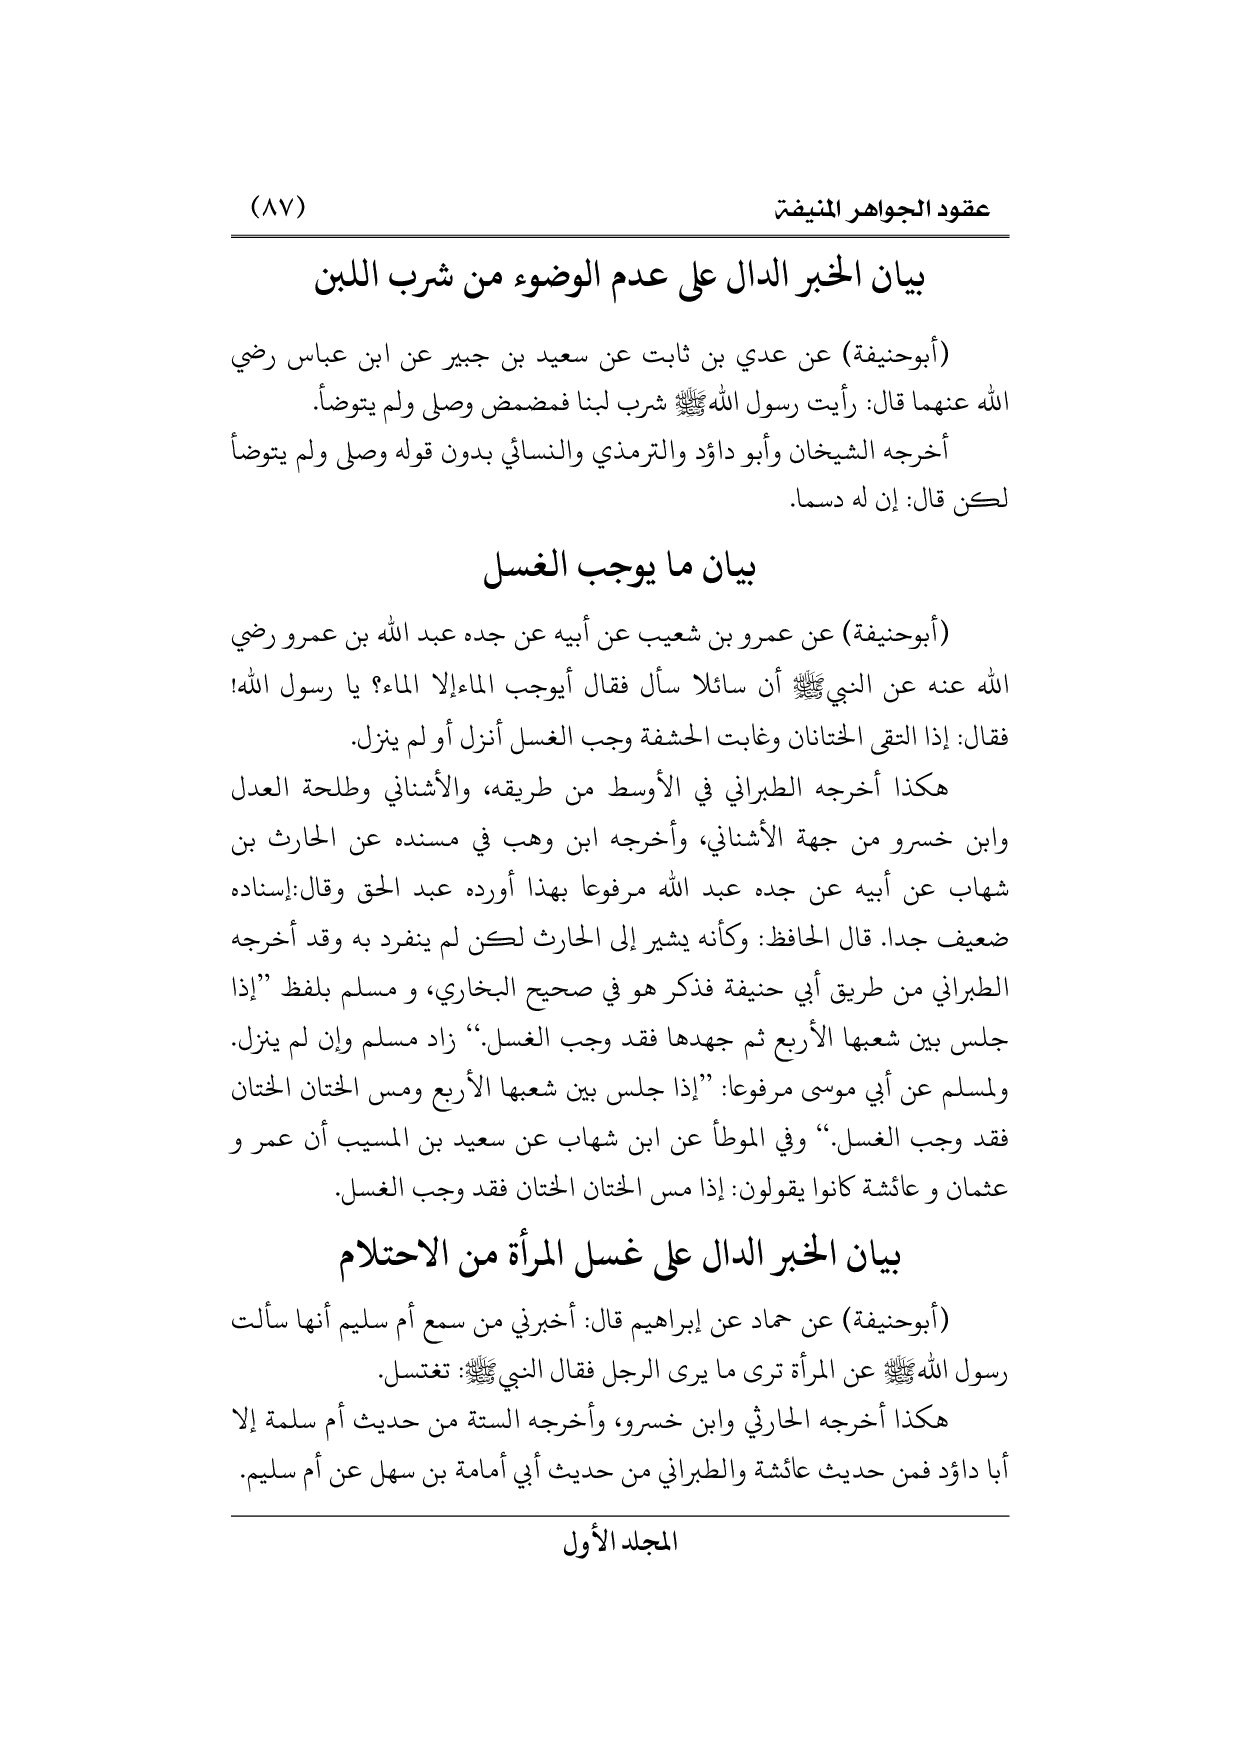 عقود الجواهر المنيفة (٨٧)
بيان الخبر الدال على عدم الوضوء من شرب اللبن
(أبوحنيفة) عن عدي بن ثابت عن سعيد بن جبير عن ابن عباس رضي
الله عنهما قال: رأيت رسول اللهﷺ شرب لبنا فمضمض وصلى ولم يتوضأ.
أخرجه الشيخان وأبو داؤد والترمذي والنسائي بدون قوله وصلى ولم يتوضأ
لكن قال: إن له دسما.
بيان ما يوجب الغسل
(أبوحنيفة) عن عمرو بن شعيب عن أبيه عن جده عبد الله بن عمرو رضي
الله عنه عن النبيﷺ أن سائلا سأل فقال أيوجب الماءإلا الماء؟ يا رسول الله!
فقال: إذا التقى الختانان وغابت الحشفة وجب الغسل أنزل أو لم ينزل.
هكذا أخرجه الطبراني في الأوسط من طريقه، والأشناني وطلحة العدل
وابن خسرو من جهة الأشناني، وأخرجه ابن وهب في مسنده عن الحارث بن
شهاب عن أبيه عن جده عبد الله مرفوعا بهذا أورده عبد الحق وقال:إسناده
ضعيف جدا. قال الحافظ: وكأنه يشير إلى الحارث لكن لم ينفرد به وقد أخرجه
الطبراني من طريق أبي حنيفة فذكر هو في صحيح البخاري، و مسلم بلفظ ”إذا
جلس بين شعبها الأربع ثم جهدها فقد وجب الغسل.“ زاد مسلم وإن لم ينزل.
ولمسلم عن أبي موسى مرفوعا: ”إذا جلس بين شعبها الأربع ومس الختان الختان
فقد وجب الغسل.“ وفي الموطأ عن ابن شهاب عن سعيد بن المسيب أن عمر و
عثمان و عائشة كانوا يقولون: إذا مس الختان الختان فقد وجب الغسل.
بيان الخبر الدال على غسل المرأة من الاحتلام
(أبوحنيفة) عن حماد عن إبراهيم قال: أخبرني من سمع أم سليم أنها سألت
رسول اللهﷺ عن المرأة ترى ما يرى الرجل فقال النبيﷺ: تغتسل.
هكذا أخرجه الحارثي وابن خسرو، وأخرجه الستة من حديث أم سلمة إلا
أبا داؤد فمن حديث عائشة والطبراني من حديث أبي أمامة بن سهل عن أم سليم.
المجلد الأول